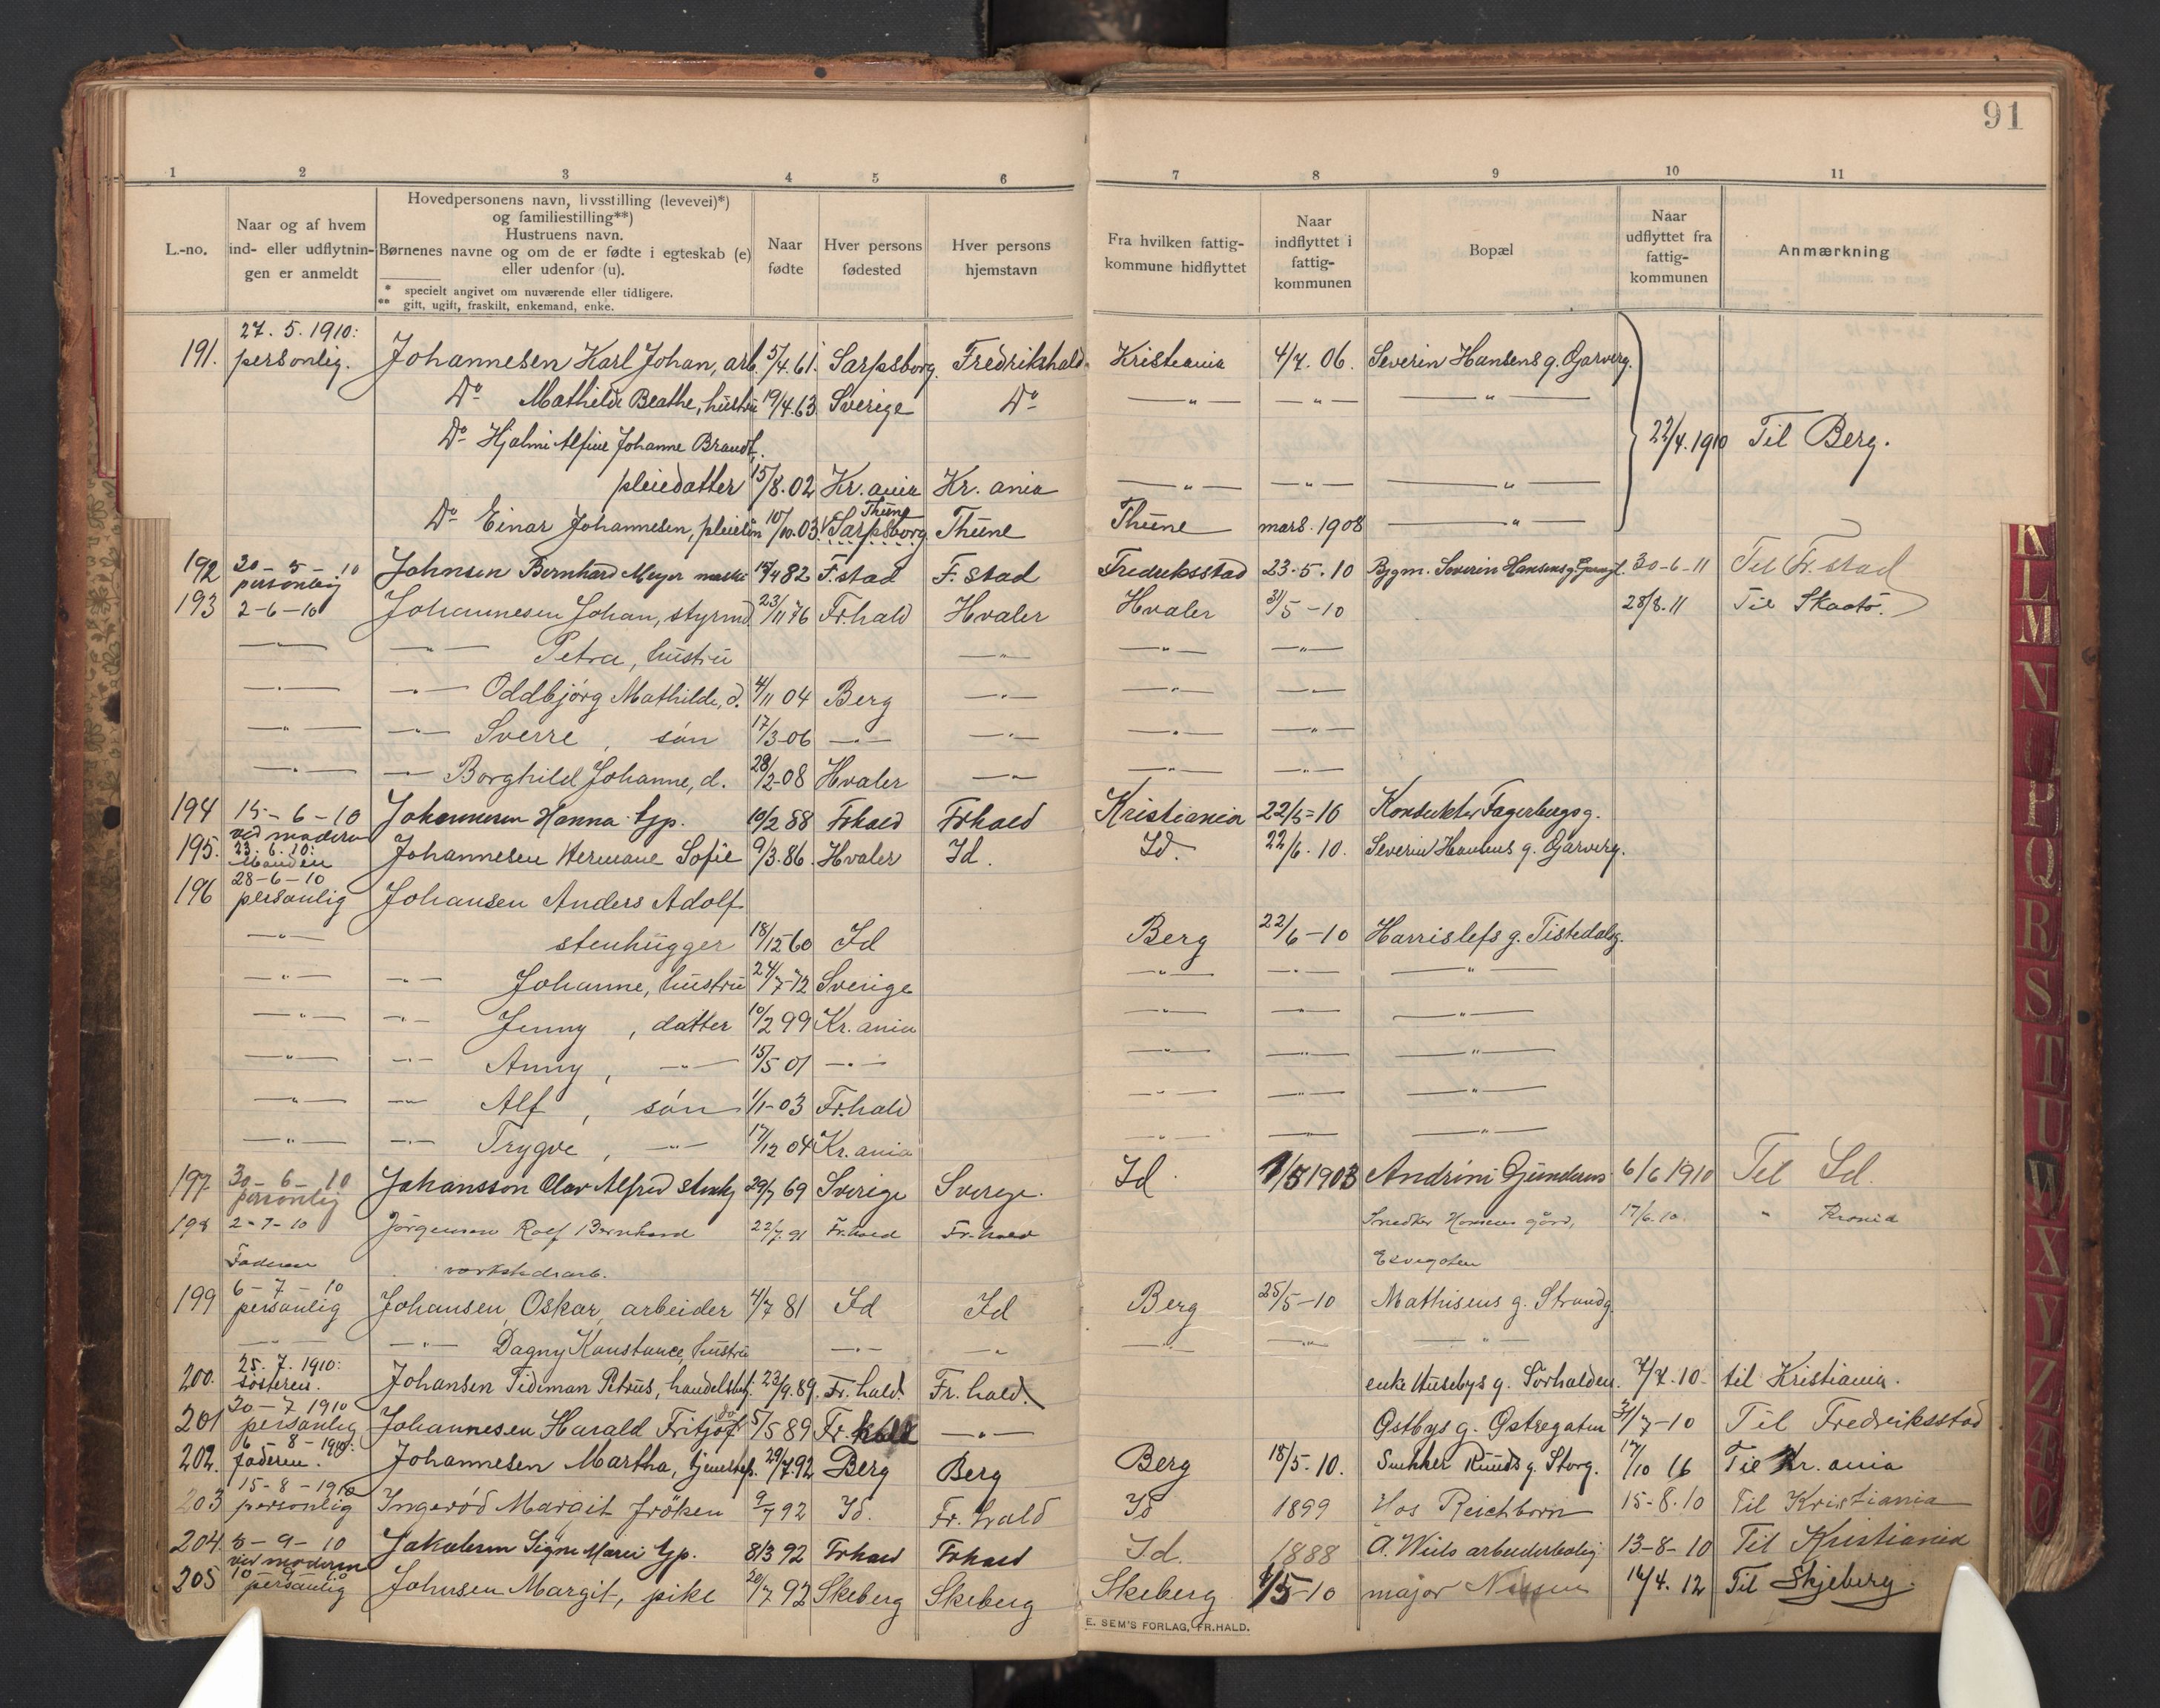 91
1 2 3 4 5 6 7 8 9 10 11
L.-no. | Naar og af hvem ind- eller udflytningen er anmeldt | Hovedpersonens navn, livsstilling (levevei)*) og familiestilling**) Hustruens navn. Børnenes navne og om de er fødte i egteskab (e) eller udenfor (u). * specielt angivet om nuværende eller tidligere. ** gift, ugift, fraskilt, enkemand, enke. | Naar fødte | Hver persons fødested | Hver persons hjemstavn | Fra hvilken fattigkommune hidflyttet | Naar indflyttet i fattigkommunen | Bopæl | Naar udflyttet fra fattigkommunen | Anmærkning
191. 27.5.1910: personlig. Johannesen Karl Johan, arb. 5/4.61. Sarpsborg. Fredrikshald. Kristiania 4/7.06. Severin Hansens g. Garverg.
Do Mathilde Beathe, hustru 19/4.63 Sverige Do — " — — " — — " —
Do Hjalmi Alfine Johanne Brandt, 22/4.1910 Til Berg.
pleiedatter 15/8.02 Kr.ania Kr. ania — " — — " — — " —
Do Einar Johannesen, pleiesøn 10/10.03 Thune Sarpsborg Thune Thune mars.1908 — " —
192 30-5-10 personlig Johnsen Bernhard Meyer maski 15/4 82 F.stad F. stad Fredriksstad 23.5.10 Bygm. Severin Hansens g. 30-6-11 Til Fr.stad
193 2-6-10 Johannesen Johan, styrmd 23/11 76 Fr.hald Hvaler Hvaler 31/5-10 28/8.11 Til Skaatø.
— " — — " — Petra, hustru — " — — " — — " —
— " — — " — Oddbjørg Mathilde, d. 4/11 04 Berg — " — — " — — " —
— " — — " — Sverre, søn 17/3-06 — " — — " — — " — — " —
— " — — Borghild Johanne, d. 28/2-08 Hvaler — " — — " — — " —
194 15-6-10 ved moderen Johannesen Hanna tjp. 10/2 88 Frhald Frhald Kristiania 22/5-10 Konduktør Fagerbergs g.
195. 23.6.10: Manden Johannesen Hermane Sofie 9/3.86 Hvaler Id. Id. 22/6.10. Severin Hansens g. Garverg.
196 28-6-10 personlig Johansen Anders Adolf
— " — stenhugger 18/12 60 Id Berg 22/6-10 Harrislefs g. Tistedalsg.
— " — — " — Johanne, hustru 24/7-72 Sverige — " — — " — — " —
— " — — " — Jenny, datter 10/2 99 Kr.ania — " — — " — — " —
— " — — " — Anny, — " — 15/5 01 — " — — " — — " — — " —
— " — — " — Alf, søn 1/1-03 Fr.hald — " — — " — — " —
— " — — " — Trygve, — " — 17/12 04 Kr.ania — " — — " — — " —
197 30-6-10 personlig Johansson Olav Alfred stenhg 29/7 69 Sverige Sverige. Id. 1/5 1903 Andrine Gundersens 6/6 1910 Til Id.
198 2-7-10 Jørgensen Rolf Bernhard 22/7.91 Fr.hald Fr.hald Snedker Hansens gård, 17/6.10. " Krania
Faderen verkstedsarb.
199 6-7-10 personlig Johansen, Oskar, arbeider 4/7 81 Id Id Berg 25/5-10 Mathisens g. Strandg.
— " — — " — Dagny Konstance, hustru — " — — " — — " — — " —
200. 25.7.1910: søsteren. Johansen Tidiman Petrus, handelsbetj. 23/9.89. Fr.hald. Fr.hald. enke Husebys g. Sørhalden. 7/7.10. til Kristiania.
201 30-7 1910 personlig Johannesen Harald Fritjof do 5/5 89 Fr.hald — " — Østbys g. Østregaten 31/7-10 Til Fredriksstad
202. 6-8-1910: faderen. Johannesen Martha, tjenestep. 29/7.92 Berg Berg Berg 18/5.10. Snekker Ruuds g. Storg. 17/10 16 Til Kr.ania
203 15-8-1910 personlig Ingerød Margit frøken 9/7 92 Id. Fr.hald Id 1899 Hos Reichborn 15-8.10 Til Kristiania
204. 5-9-10 ved moderen Jakobsen Signe Marie tjp. 8/3 92 Frhald Frhald Id. 1888 O. Wiels arbeiderbolig 13-8-10 Til Kristiania
205 10-9-10 personlig Johnsen Margit, pike 20/7 92 Skeberg Skeberg Skeberg 1/5-10 major 16/4.12 Til Skjeberg.
E. SEM'S FORLAG, FR.HALD.
K L M N O P Q R S T U W X Y Z Æ Ø